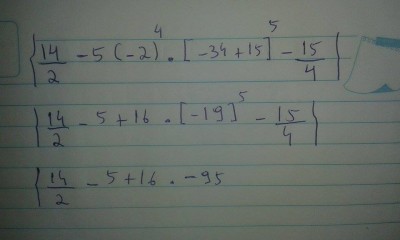 { 14/2 - 5 (-2)⁴ · [-34 + 15]⁵ - 15/4 }
{ 14/2 - 5 + 16 · [-19]⁵ - 15/4 }
{ 14/2 - 5 + 16 · - 95